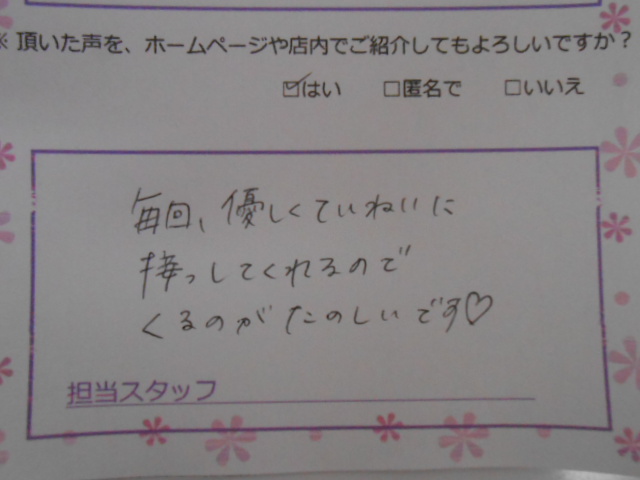 ※ 頂いた声を、ホームページや店内でご紹介してもよろしいですか？
☑はい □匿名で □いいえ
毎回、優しくていねいに
接っしてくれるので
くるのがたのしいです♡
担当スタッフ